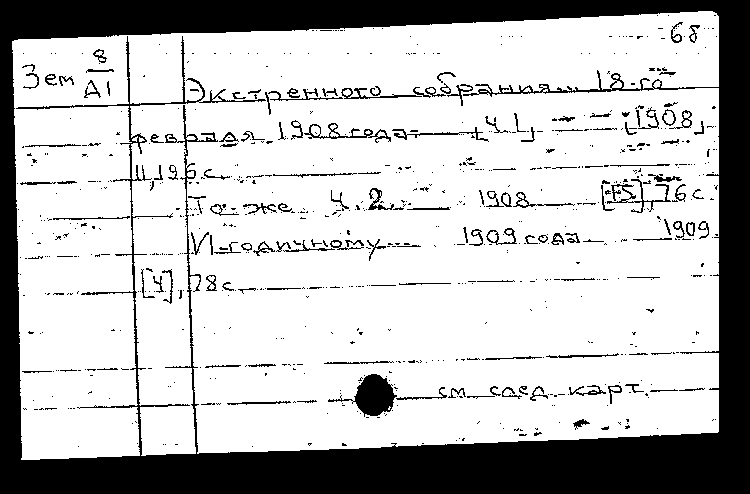 6б
Зем 8/А1
Экстренного собрания... 18-го
февраля 1908 года. [Ч 1] — — [1908]
II, 196 с.
То-же Ч. 2. 1908 [15], 76 с.
И-годичному... 1909 года 1909.
[4], 78 с.
см. след. карт.